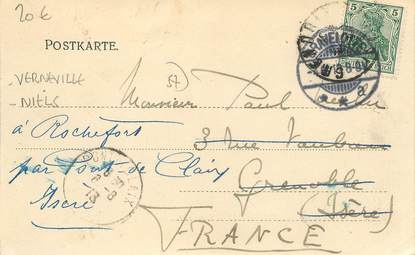 20€
POSTKARTE.
GRAVELOTTE
5 5
VERNEVILLE
- NIELS
(57)
Monsieur Paul
à Rochefort
3 rue Vauban
par Pont de Claix
Grenoble
Isère
(Isère)
FRANCE